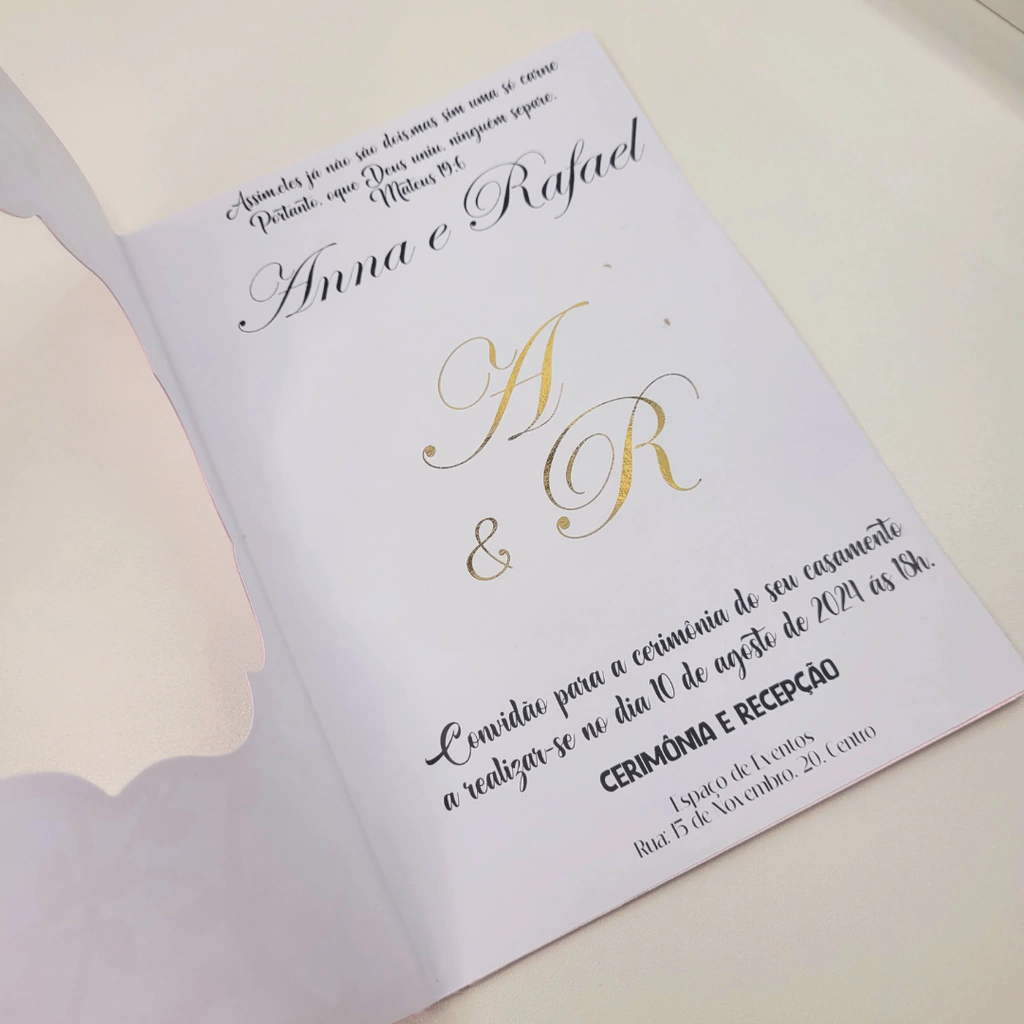 Assim,eles já não são dois,mas sim uma só carne
Portanto, oque Deus uniu, ninguém separe.
Mateus 19:6
Anna e Rafael
A
R
&
Convidão para a cerimônia do seu casamento
a realizar-se no dia 10 de agosto de 2024 ás 18h.
CERIMÔNIA E RECEPÇÃO
Espaço de Eventos
Rua: 15 de Novembro, 20, Centro